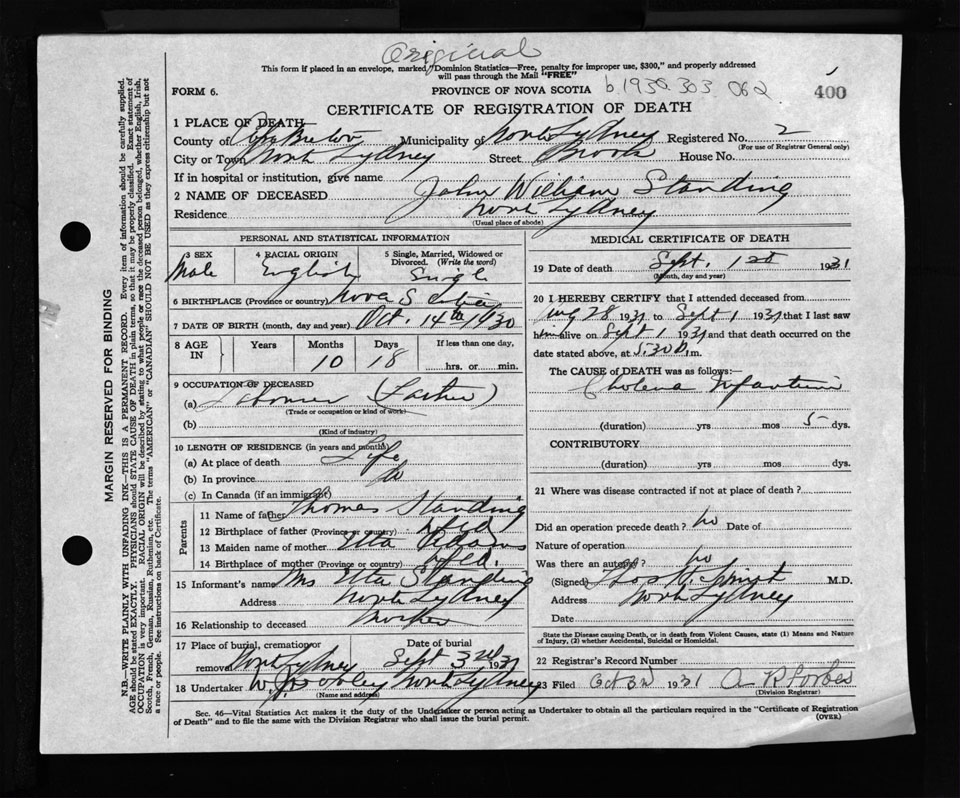 Original
This form if placed in an envelope, marked, "Dominion Statistics—Free, penalty for improper use, $300," and properly addressed
will pass through the Mail "FREE"
FORM 6.
PROVINCE OF NOVA SCOTIA b.1930.303.062
400
CERTIFICATE OF REGISTRATION OF DEATH
1 PLACE OF DEATH
County of Cape Breton Municipality of North Sydney Registered No. 2
(For use of Registrar General only)
City or Town North Sydney Street Brook House No.
If in hospital or institution, give name
2 NAME OF DECEASED John William Standing
Residence North Sydney
(Usual place of abode)
PERSONAL AND STATISTICAL INFORMATION
3 SEX 4 RACIAL ORIGIN 5 Single, Married, Widowed or
Divorced. (Write the word)
Male English Single
6 BIRTHPLACE (Province or country) Nova Scotia
7 DATE OF BIRTH (month, day and year) Oct. 14th 1930
8 AGE IN Years Months Days If less than one day,
10 18 hrs. or min.
9 OCCUPATION OF DECEASED
(a) Labourer (Father)
(Trade or occupation or kind of work)
(b)
(Kind of industry)
10 LENGTH OF RESIDENCE (in years and months)
(a) At place of death Life
(b) In province do
(c) In Canada (if an immigrant)
Parents
11 Name of father Thomas Standing
12 Birthplace of father (Province or country) Nfld
13 Maiden name of mother Etta
14 Birthplace of mother (Province or country) Nfld.
15 Informant's name Mrs Etta Standing
Address North Sydney
16 Relationship to deceased Mother
17 Place of burial, cremation or Date of burial
removal North Sydney Sept 3rd 1931
18 Undertaker W. North Sydney
(Name and address)
MEDICAL CERTIFICATE OF DEATH
19 Date of death Sept. 1st 1931
(Month, day and year)
20 I HEREBY CERTIFY that I attended deceased from
Aug 28 1931 to Sept 1 1931 that I last saw
him alive on Sept 1 1931 and that death occurred on the
date stated above, at 5.30 m.
The CAUSE of DEATH was as follows:—
Cholera Infantum
(duration) yrs mos 5 dys.
CONTRIBUTORY
(duration) yrs mos dys.
21 Where was disease contracted if not at place of death?
Did an operation precede death? no Date of
Nature of operation
Was there an autopsy? no
(Signed) Thos M.D.
Address North Sydney
Date
State the Disease causing Death, or in death from Violent Causes, state (1) Means and Nature
of Injury, (2) whether Accidental, Suicidal or Homicidal.
22 Registrar's Record Number
23 Filed Oct 3rd 1931 A R Forbes
(Division Registrar)
Sec. 46—Vital Statistics Act makes it the duty of the Undertaker or person acting as Undertaker to obtain all the particulars required in the "Certificate of Registration
of Death" and to file the same with the Division Registrar who shall issue the burial permit.
(OVER)
MARGIN RESERVED FOR BINDING
N.B.—WRITE PLAINLY WITH UNFADING INK—THIS IS A PERMANENT RECORD. Every item of information should be carefully supplied.
AGE should be stated EXACTLY. PHYSICIANS should STATE CAUSE OF DEATH in plain terms, so that it may be properly classified. Exact statement of
OCCUPATION is very important. RACIAL ORIGIN will be described by stating to what people or race the deceased person belonged, whether English, Irish,
Scotch, French, German, Russian, Ruthenian, etc. The terms "AMERICAN" or "CANADIAN" SHOULD NOT BE USED as they express citizenship but not
a race or people. See instructions on back of Certificate.